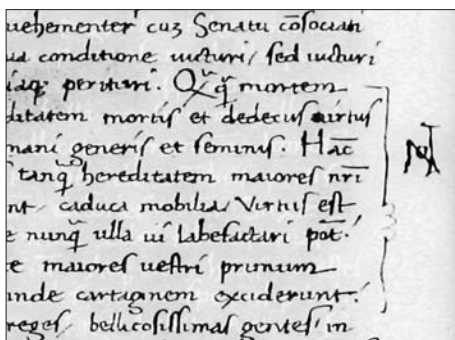 uehementer cuʒ Senatu cōsociati
ua conditione uicturi / sed uicturi
iaqʒ perituri. Qq̄ mortem
litatem mortis et dedecus uirtus
mani generis et seminis. Hāc
tanq̄ hereditatem maiores nr̄i
nt caduca mobilia / Virtus est
e nunq̄ ulla ui labefactari pōt.
e maiores uestri primum
inde cartaginem exciderunt.
reges / bellicosissimas gentes in